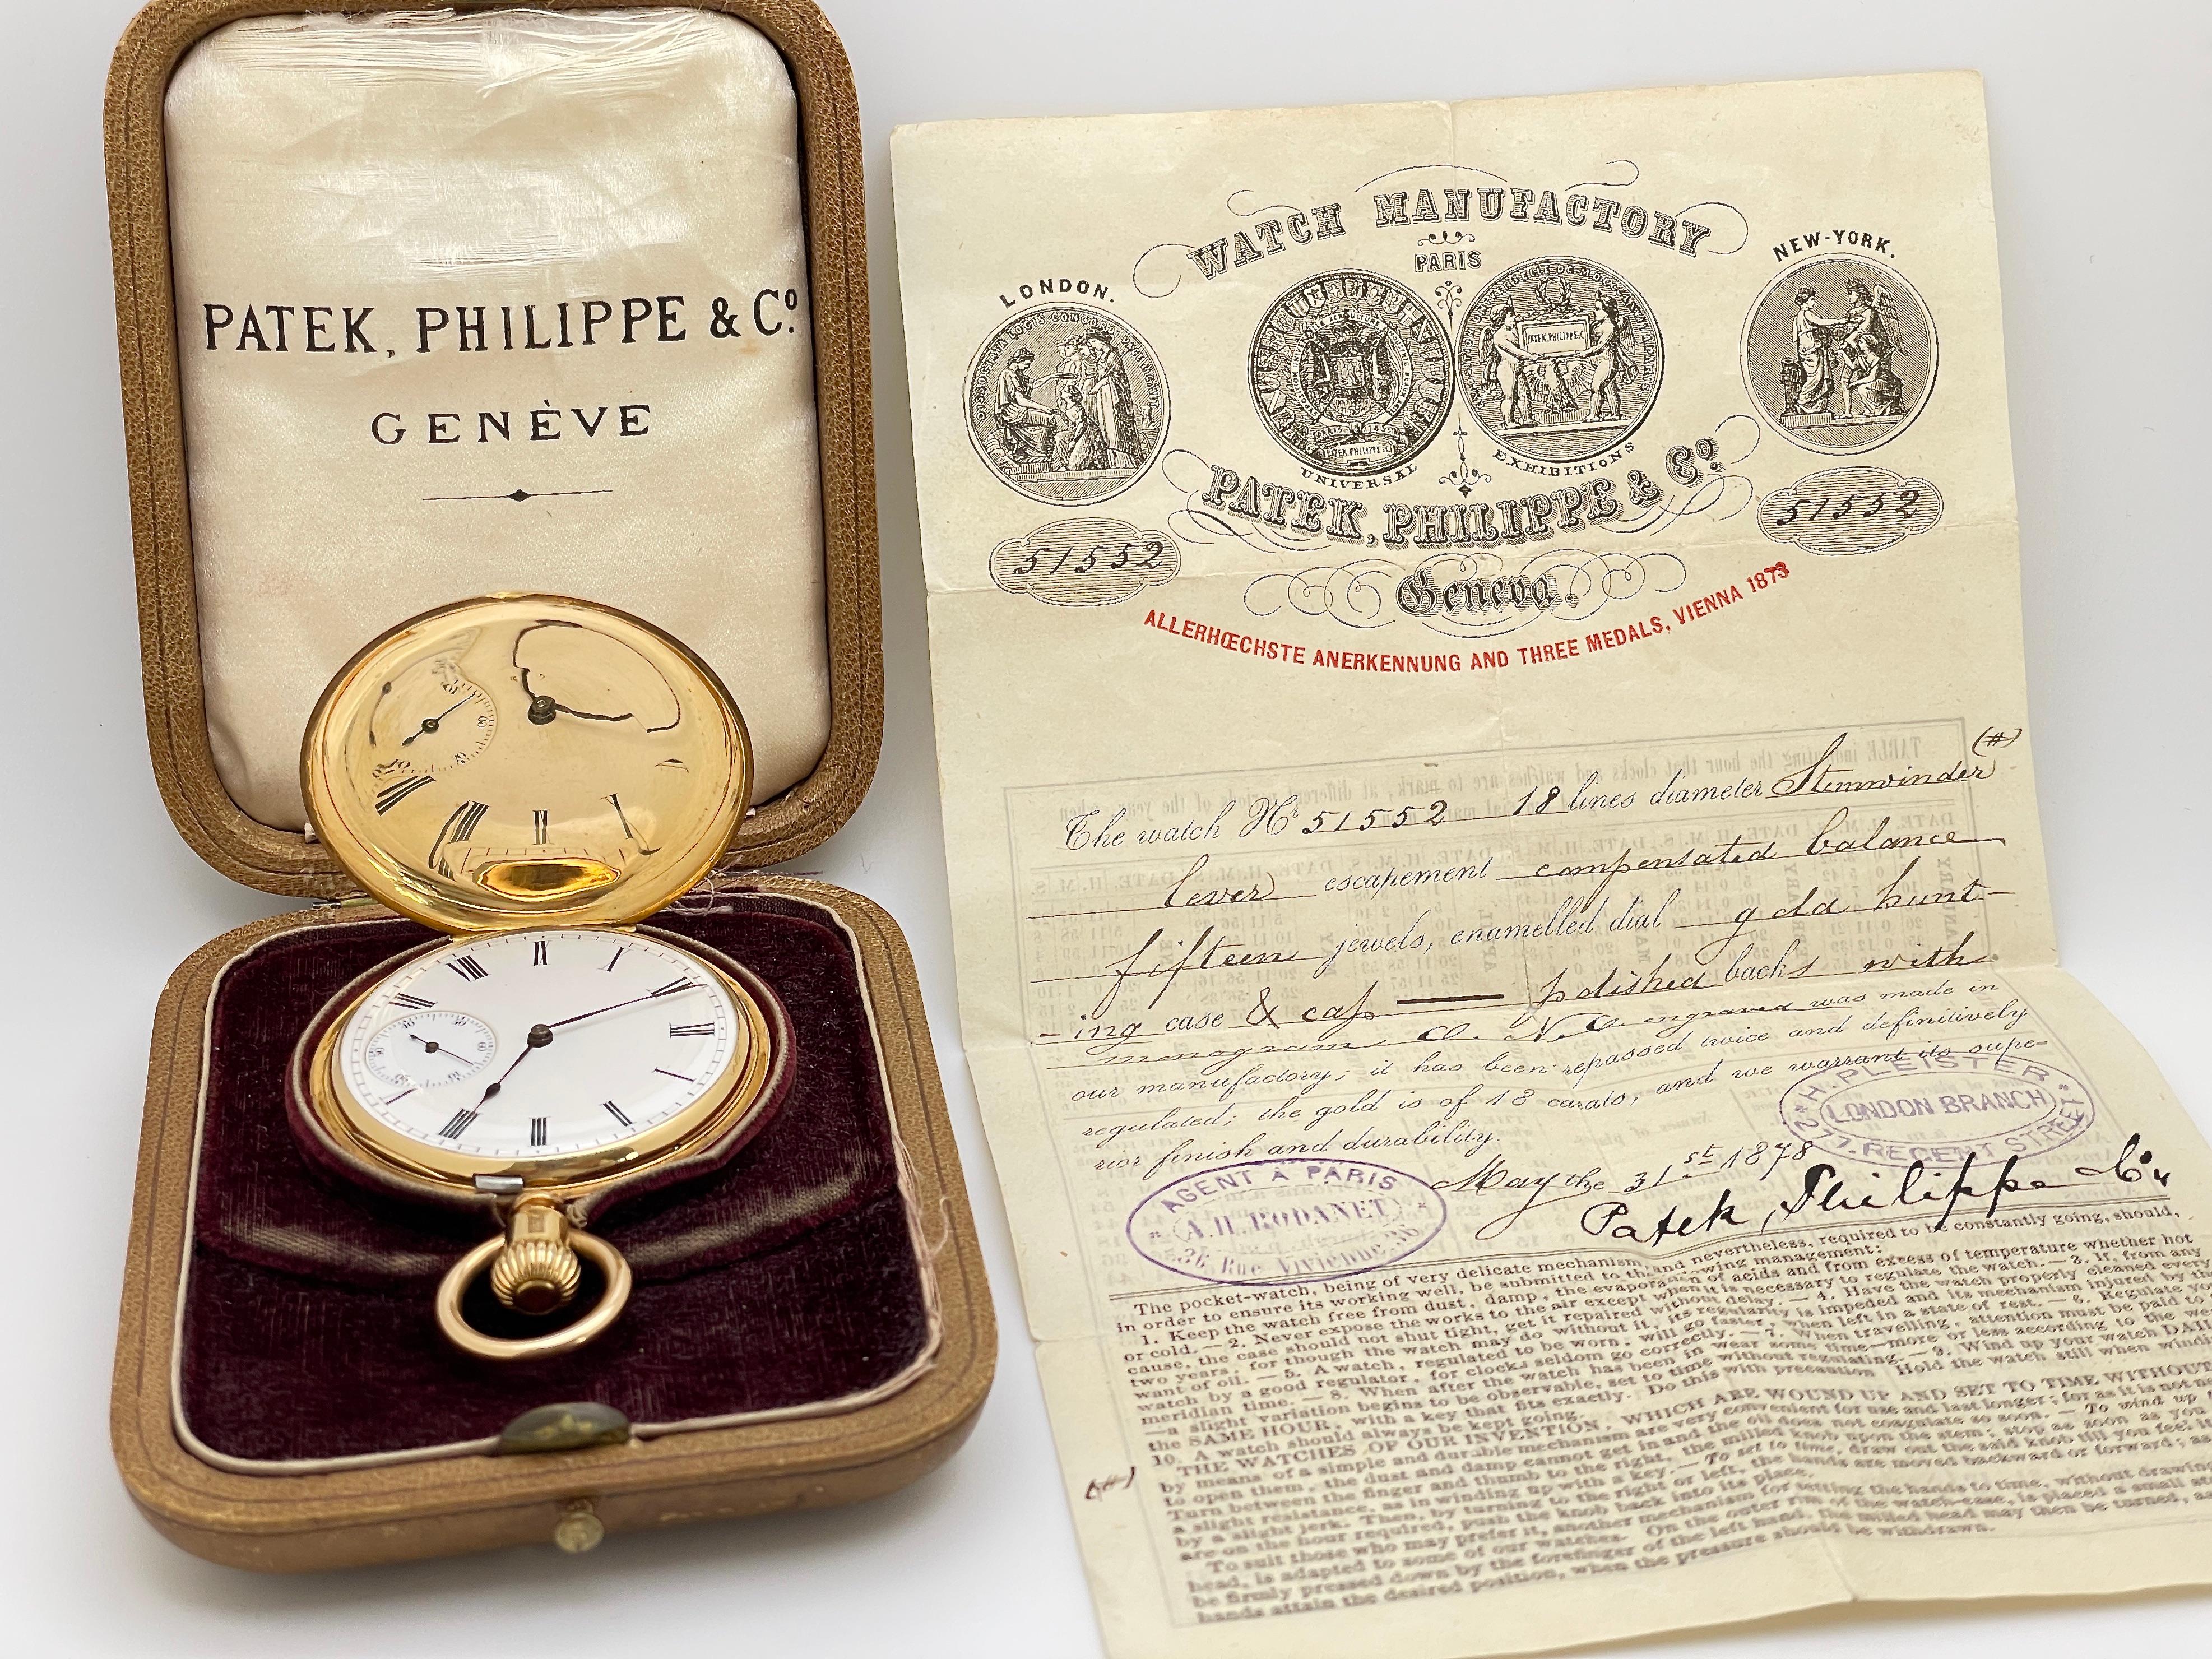 PATEK, PHILIPPE & Cº
GENÈVE
WATCH MANUFACTORY
PARIS
LONDON.
NEW-YORK.
PATEK, PHILIPPE & Cº
UNIVERSAL
EXHIBITIONS
PATEK, PHILIPPE & Cº
51552
51552
Geneva.
ALLERHŒCHSTE ANERKENNUNG AND THREE MEDALS, VIENNA 1873
(#)
The watch Nr 51552 18 lines diameter Stemwinder
lever escapement compensated balance
fifteen jewels, enamelled dial gold hunt-
-ing case & cap polished backs with
monogram engraved was made in
our manufactory; it has been repassed twice and definitively
regulated; the gold is of 18 carats, and we warrant its supe-
rior finish and durability.
H. PLEISTER
LONDON BRANCH
277. REGENT STREET
May the 31st 1878
AGENT A PARIS
A.H. RODANET
36, Rue Vivienne, 36
Patek, Philippe & Co
The pocket-watch, being of very delicate mechanism, and nevertheless, required to be constantly going, should,
in order to ensure its working well, be submitted to the following management:
1. Keep the watch free from dust, damp, the evaporation of acids and from excess of temperature whether hot
or cold. — 2. Never expose the works to the air except when it is necessary to regulate the watch. — 3. If, from any
cause, the case should not shut tight, get it repaired without delay. — 4. Have the watch properly cleaned every
two years, for though the watch may do without it, its regularity is impeded and its mechanism injured by the
want of oil. — 5. A watch, regulated to be worn, will go faster, when left in a state of rest. — 6. Regulate your
watch by a good regulator, for clocks seldom go correctly. — 7. When travelling, attention must be paid to
meridian time. — 8. When after the watch has been in wear some time — more or less according to the
— a slight variation begins to be observable, set to time without regulating. — 9. Wind up your watch DAILY
the SAME HOUR, with a key that fits exactly. Do this with precaution Hold the watch still when winding
10. A watch should always be kept going.
THE WATCHES OF OUR INVENTION, WHICH ARE WOUND UP AND SET TO TIME WITHOUT
by means of a simple and durable mechanism are very convenient for use and last longer; for as it is not
to open them, the dust and damp cannot get in and the oil does not coagulate so soon. — To wind up
Turn between the finger and thumb to the right, the milled knob upon the stem; stop as soon as you
a slight resistance, as in winding up with a key. — To set to time, draw out the said knob till you feel it
by a slight jerk. Then, by turning to the right or left, the hands are moved backward or forward; as
are on the hour required, push the knob back into its place.
To suit those who may prefer it, another mechanism for setting the hands to time, without drawing
head, is adapted to some of our watches. On the outer rim of the watch-case, is placed a small
be firmly pressed down by the forefinger of the left hand, the milled head may then be turned,
hands attain the desired position, when the pressure should be withdrawn.
(#)